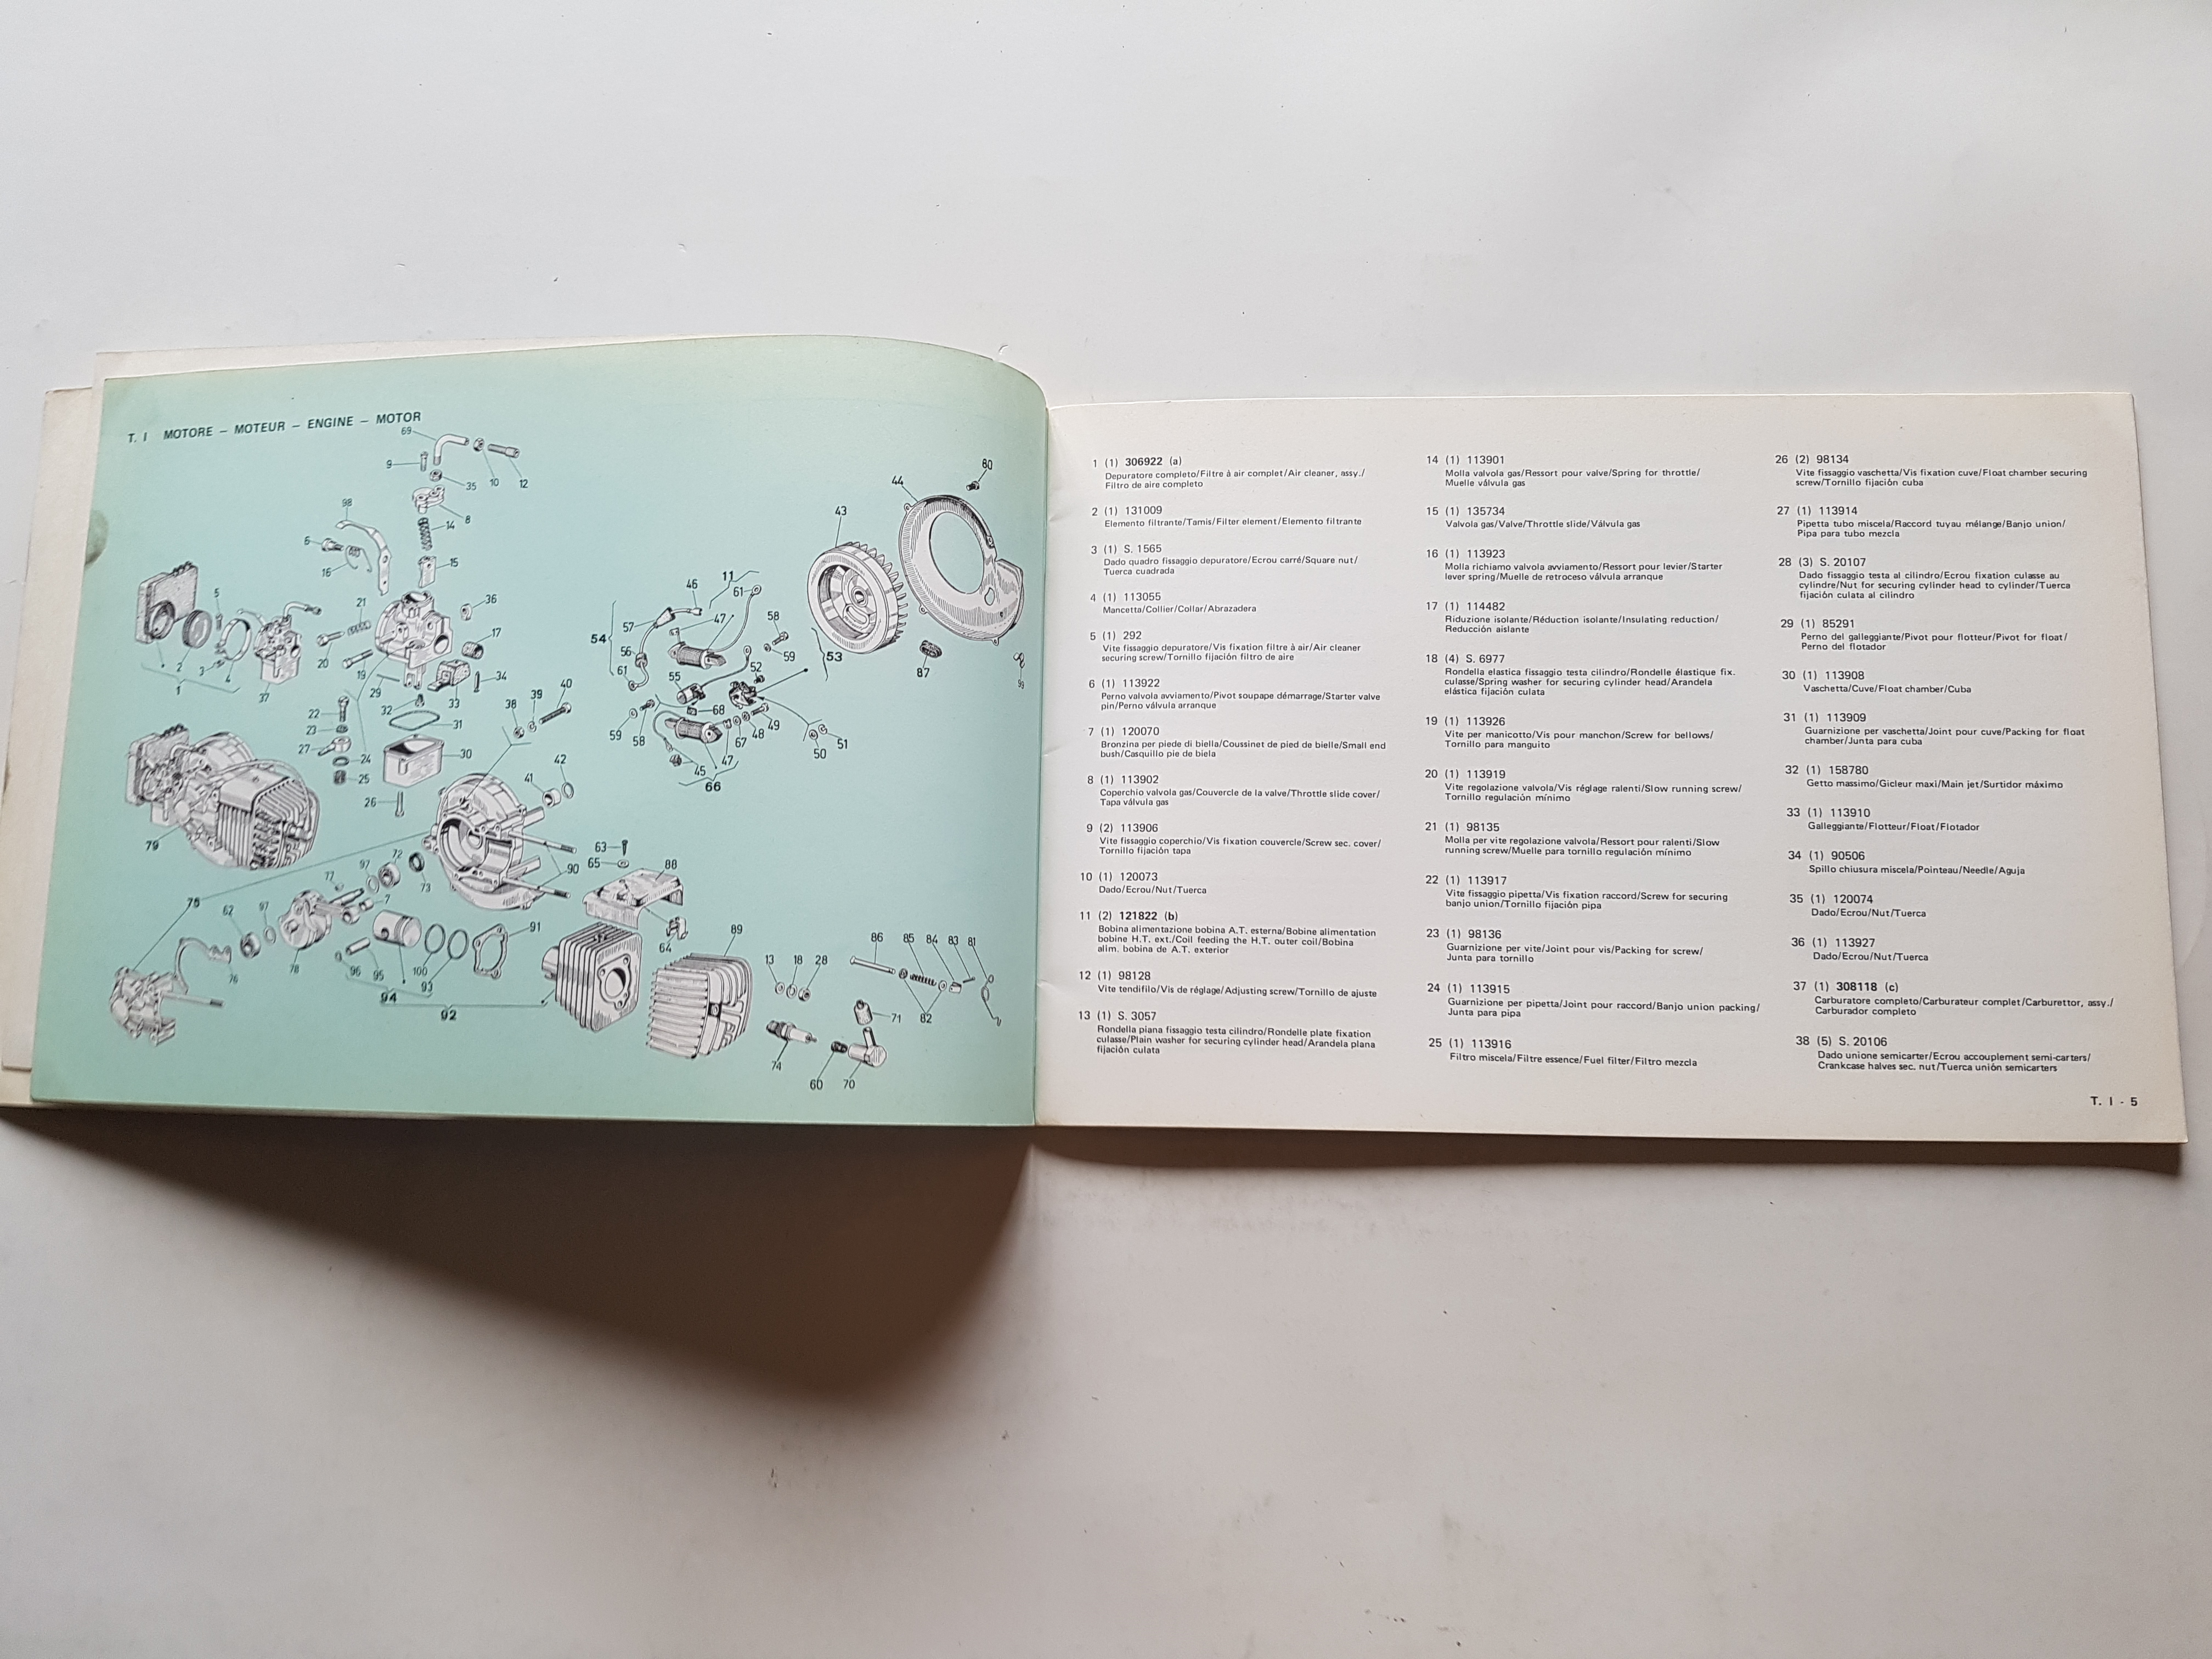 T. I MOTORE – MOTEUR – ENGINE – MOTOR
69
9
10
12
35
8
98
14
6
16
15
5
21
36
20
17
2
3
4
1
37
19
29
34
33
32
22
31
23
27
24
30
25
26
79
38
39
40
41
42
46
11
61
57
47
54
56
61
58
59
53
55
52
68
59
58
49
48
67
50
51
45
47
66
43
44
80
87
99
63
65
88
90
97
72
73
77
7
75
62
97
76
78
96
95
100
93
94
92
91
64
89
13
18
28
86
85
84
83
81
82
71
74
60
70
1 (1) 306922 (a)
Depuratore completo/Filtre à air complet/Air cleaner, assy./
Filtro de aire completo
2 (1) 131009
Elemento filtrante/Tamis/Filter element/Elemento filtrante
3 (1) S. 1565
Dado quadro fissaggio depuratore/Ecrou carré/Square nut/
Tuerca cuadrada
4 (1) 113055
Mancetta/Collier/Collar/Abrazadera
5 (1) 292
Vite fissaggio depuratore/Vis fixation filtre à air/Air cleaner
securing screw/Tornillo fijación filtro de aire
6 (1) 113922
Perno valvola avviamento/Pivot soupape démarrage/Starter valve
pin/Perno válvula arranque
7 (1) 120070
Bronzina per piede di biella/Coussinet de pied de bielle/Small end
bush/Casquillo pie de biela
8 (1) 113902
Coperchio valvola gas/Couvercle de la valve/Throttle slide cover/
Tapa válvula gas
9 (2) 113906
Vite fissaggio coperchio/Vis fixation couvercle/Screw sec. cover/
Tornillo fijación tapa
10 (1) 120073
Dado/Ecrou/Nut/Tuerca
11 (2) 121822 (b)
Bobina alimentazione bobina A.T. esterna/Bobine alimentation
bobine H.T. ext./Coil feeding the H.T. outer coil/Bobina
alim. bobina de A.T. exterior
12 (1) 98128
Vite tendifilo/Vis de réglage/Adjusting screw/Tornillo de ajuste
13 (1) S. 3057
Rondella piana fissaggio testa cilindro/Rondelle plate fixation
culasse/Plain washer for securing cylinder head/Arandela plana
fijación culata
14 (1) 113901
Molla valvola gas/Ressort pour valve/Spring for throttle/
Muelle válvula gas
15 (1) 135734
Valvola gas/Valve/Throttle slide/Válvula gas
16 (1) 113923
Molla richiamo valvola avviamento/Ressort pour levier/Starter
lever spring/Muelle de retroceso válvula arranque
17 (1) 114482
Riduzione isolante/Réduction isolante/Insulating reduction/
Reducción aislante
18 (4) S. 6977
Rondella elastica fissaggio testa cilindro/Rondelle élastique fix.
culasse/Spring washer for securing cylinder head/Arandela
elástica fijación culata
19 (1) 113926
Vite per manicotto/Vis pour manchon/Screw for bellows/
Tornillo para manguito
20 (1) 113919
Vite regolazione valvola/Vis réglage ralenti/Slow running screw/
Tornillo regulación mínimo
21 (1) 98135
Molla per vite regolazione valvola/Ressort pour ralenti/Slow
running screw/Muelle para tornillo regulación mínimo
22 (1) 113917
Vite fissaggio pipetta/Vis fixation raccord/Screw for securing
banjo union/Tornillo fijación pipa
23 (1) 98136
Guarnizione per vite/Joint pour vis/Packing for screw/
Junta para tornillo
24 (1) 113915
Guarnizione per pipetta/Joint pour raccord/Banjo union packing/
Junta para pipa
25 (1) 113916
Filtro miscela/Filtre essence/Fuel filter/Filtro mezcla
26 (2) 98134
Vite fissaggio vaschetta/Vis fixation cuve/Float chamber securing
screw/Tornillo fijación cuba
27 (1) 113914
Pipetta tubo miscela/Raccord tuyau mélange/Banjo union/
Pipa para tubo mezcla
28 (3) S. 20107
Dado fissaggio testa al cilindro/Ecrou fixation culasse au
cylindre/Nut for securing cylinder head to cylinder/Tuerca
fijación culata al cilindro
29 (1) 85291
Perno del galleggiante/Pivot pour flotteur/Pivot for float/
Perno del flotador
30 (1) 113908
Vaschetta/Cuve/Float chamber/Cuba
31 (1) 113909
Guarnizione per vaschetta/Joint pour cuve/Packing for float
chamber/Junta para cuba
32 (1) 158780
Getto massimo/Gicleur maxi/Main jet/Surtidor máximo
33 (1) 113910
Galleggiante/Flotteur/Float/Flotador
34 (1) 90506
Spillo chiusura miscela/Pointeau/Needle/Aguja
35 (1) 120074
Dado/Ecrou/Nut/Tuerca
36 (1) 113927
Dado/Ecrou/Nut/Tuerca
37 (1) 308118 (c)
Carburatore completo/Carburateur complet/Carburettor, assy./
Carburador completo
38 (5) S. 20106
Dado unione semicarter/Ecrou accouplement semi-carters/
Crankcase halves sec. nut/Tuerca unión semicarters
T. I - 5